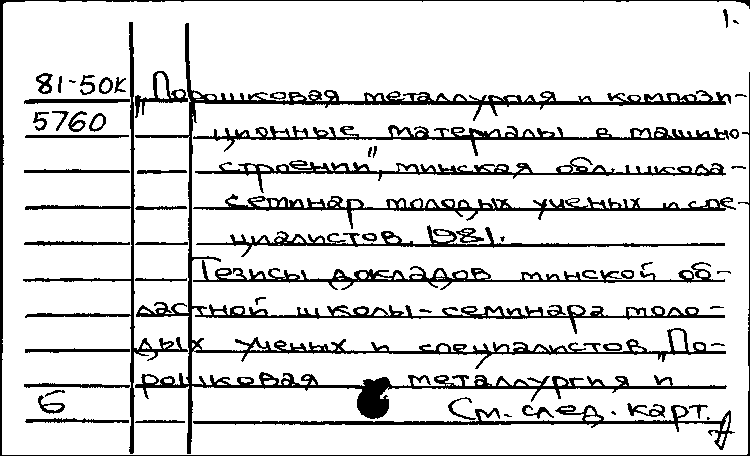 1.
81-50к „Порошковая металлургия и компози-
5760 ционные материалы в машино-
строении", минская обл. школа-
семинар молодых ученых и спе-
циалистов. 1981.
Тезисы докладов минской об-
ластной школы-семинара моло-
дых ученых и специалистов „По-
рошковая металлургия и
6 См. след. карт.